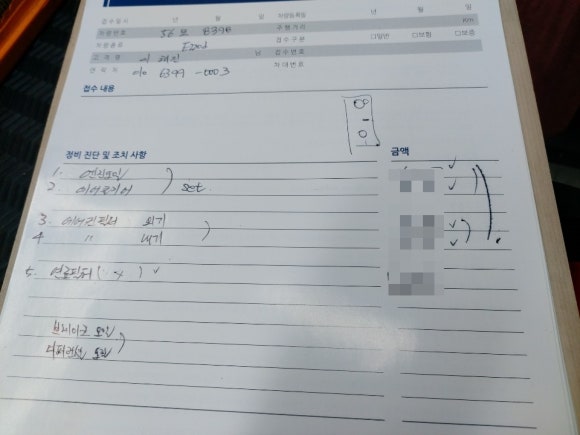 접수일시 년 월 일 차량등록일 년 월 일
차량번호 56 보 8398 주행거리 Km
차량종류 E220d 접수구분 □일반 □보험 □보증
고객명 이 님 접수번호
연락처 010 6399 -0003 차대번호
접수 내용
정비 진단 및 조치 사항 금액
1. 엔진오일
2. 에어크리너 set
3. 에어컨필터 외기
4 〃 내기
5. 연료필터
브레이크 오일